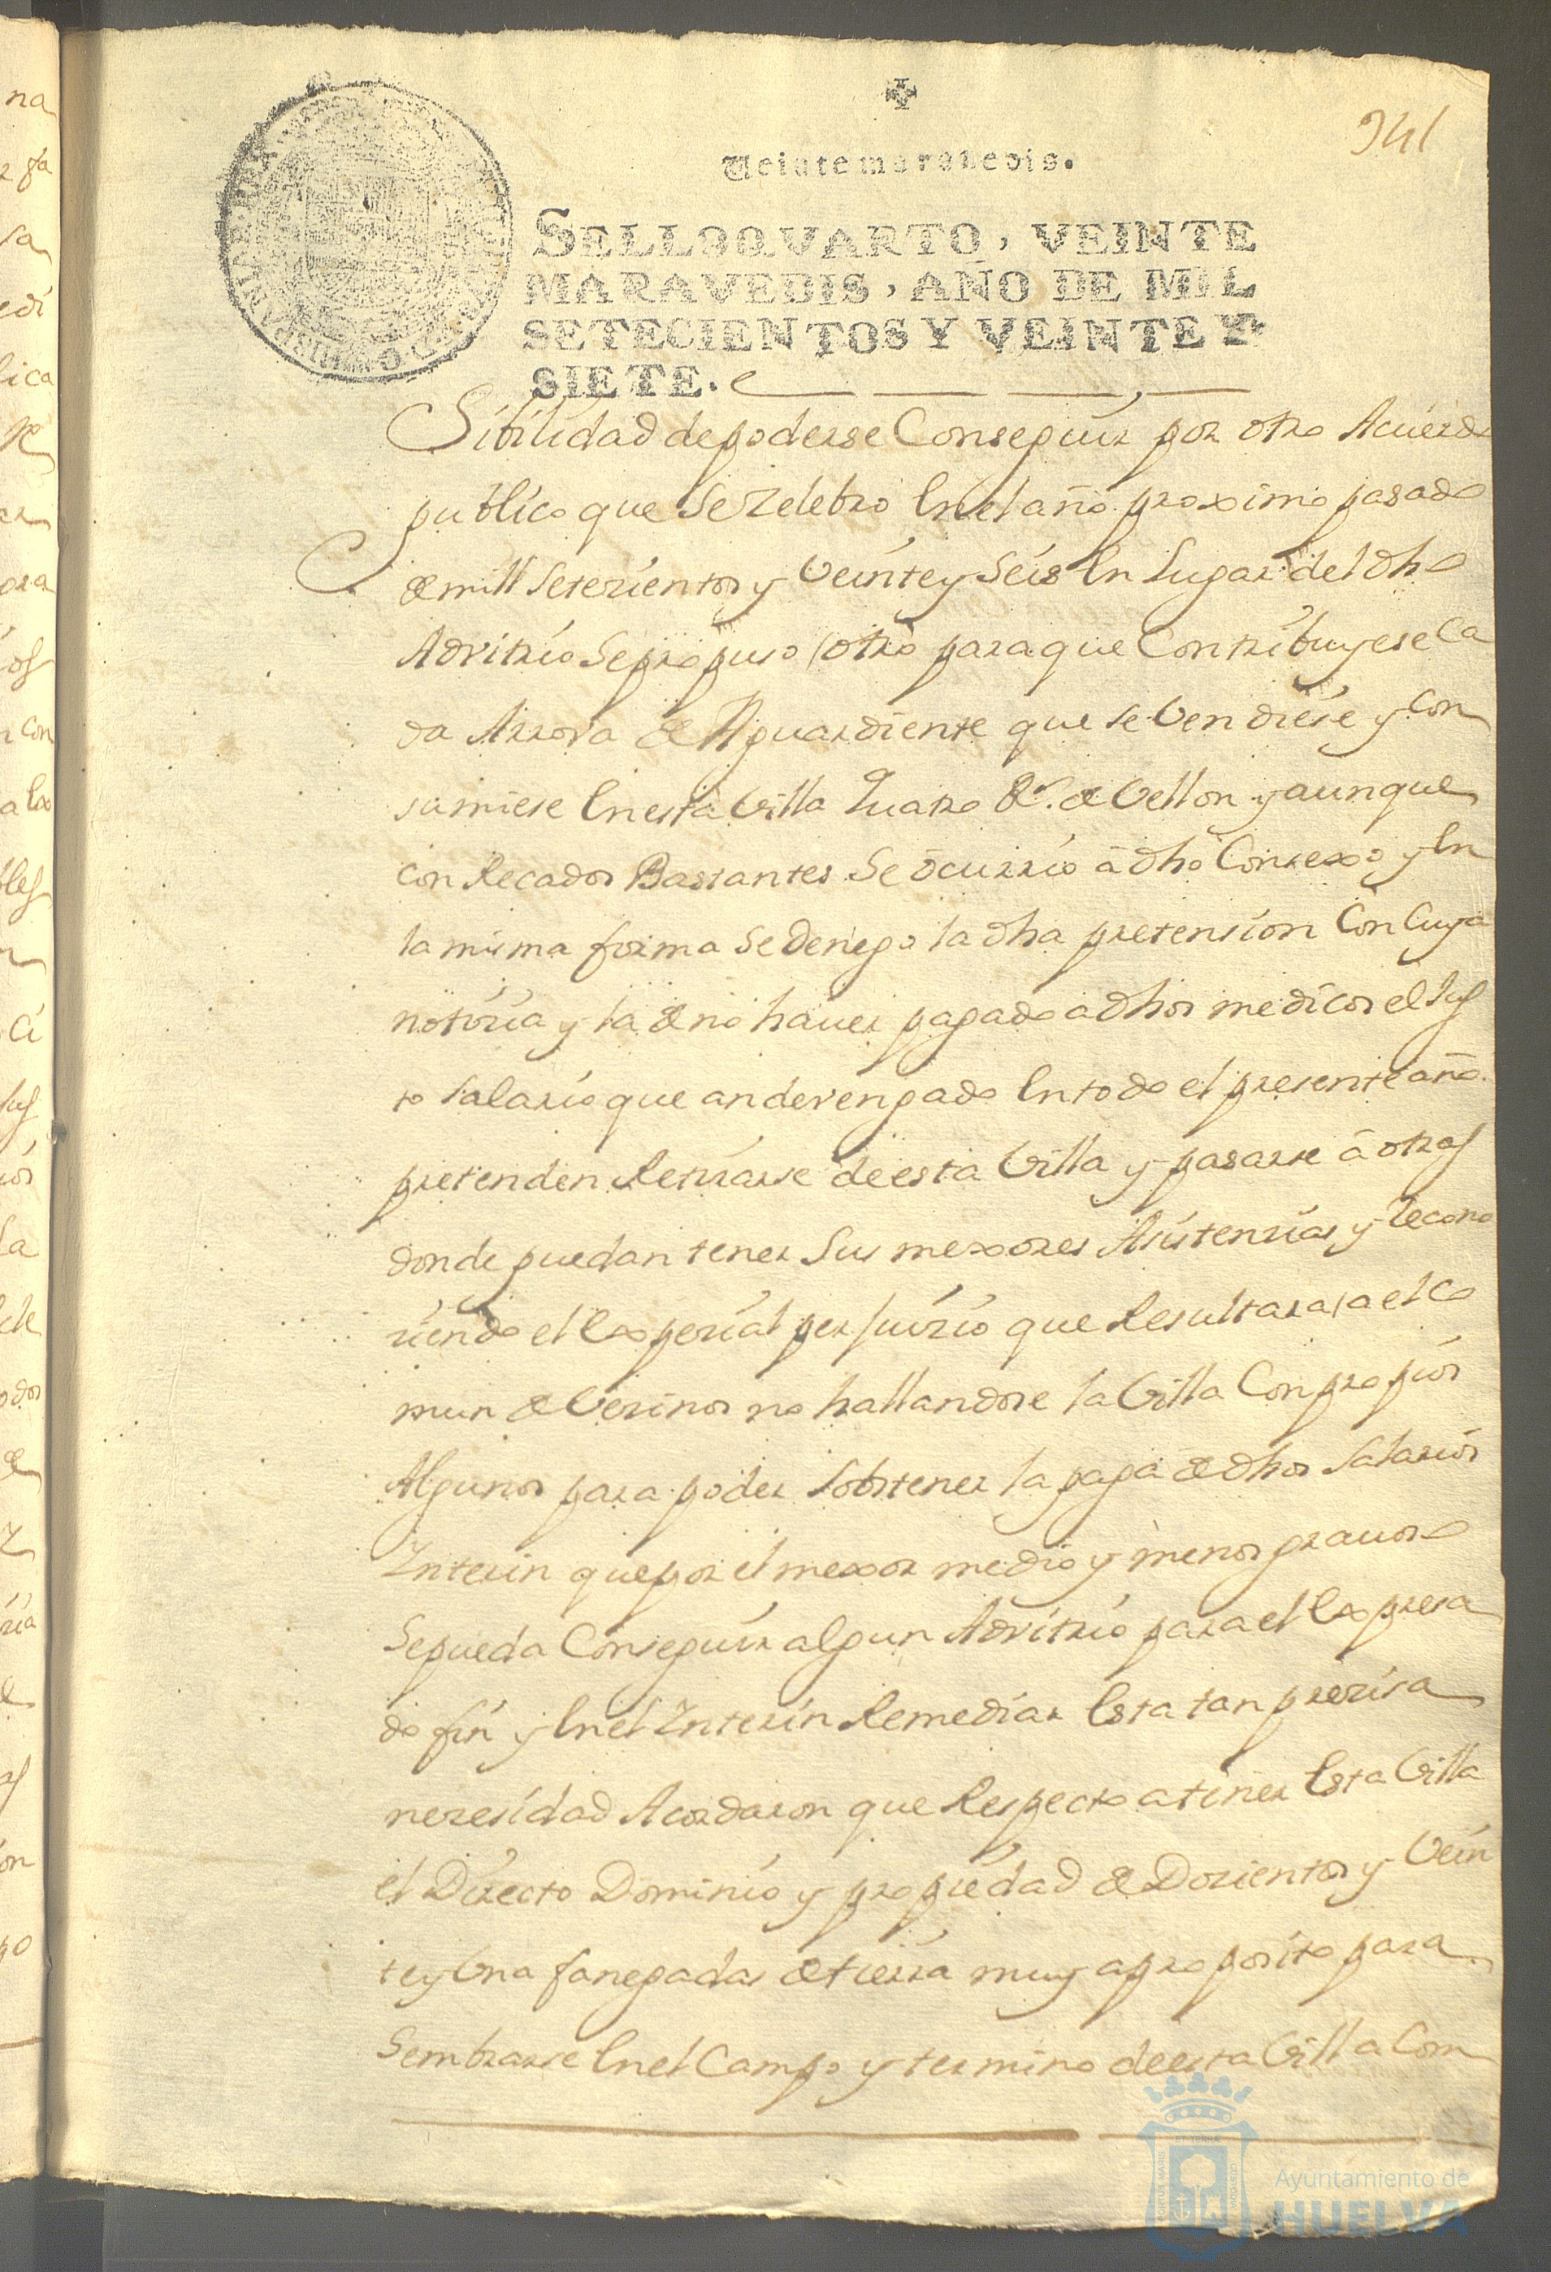 941
Veinte maravedis.
SELLO QVARTO, VEINTE
MARAVEDIS, AÑO DE MIL
SETECIENTOS Y VEINTE Y
SIETE.
Sibilidad de poderse Conseguir por otro Acuerdo
publico que se Zelebro En el año proximo pasado
de mill Setezientos y Veinte y Seis En Lugar del dho
Advitrio Se propuso otro para que Contribuyese Ca
da Arrova de Aguardiente que se Vendiese y Con
sumiese En esta Villa quatro Rs. de Vellon y aunque
Con Recados Bastantes Se ocurrio â dho Consexo y En
la misma forma Se denego la dha pretension Con Cuya
notizia y la de no hauer pagado a dhos medicos el Jus
to Salario que an devengado En todo el presente año
pretenden Retirarse de esta Villa y pasarse â otras
donde puedan tener Sus mexores Asistenzias y Recono
ziendo el Expezial perjuizio que Resultara a el Co
mun de Vezinos no hallandose la Villa Con propios
Algunos para poder sobstener la paga de dhos Salarios
Interin que por el mexor medio y menos gravoso
Se pueda Conseguir algun Advitrio para el Expresa
do fin y En el Interin Remediar Esta tan preziza
nezesidad Acordaron que Respecto a tener Esta Villa
el Directo Dominio y propiedad de Dozientas y Vein
te y Una fanegadas de tierra muy a proposito para
Sembrarse En el Campo y termino de esta Villa Com
Ayuntamiento de
HUELVA